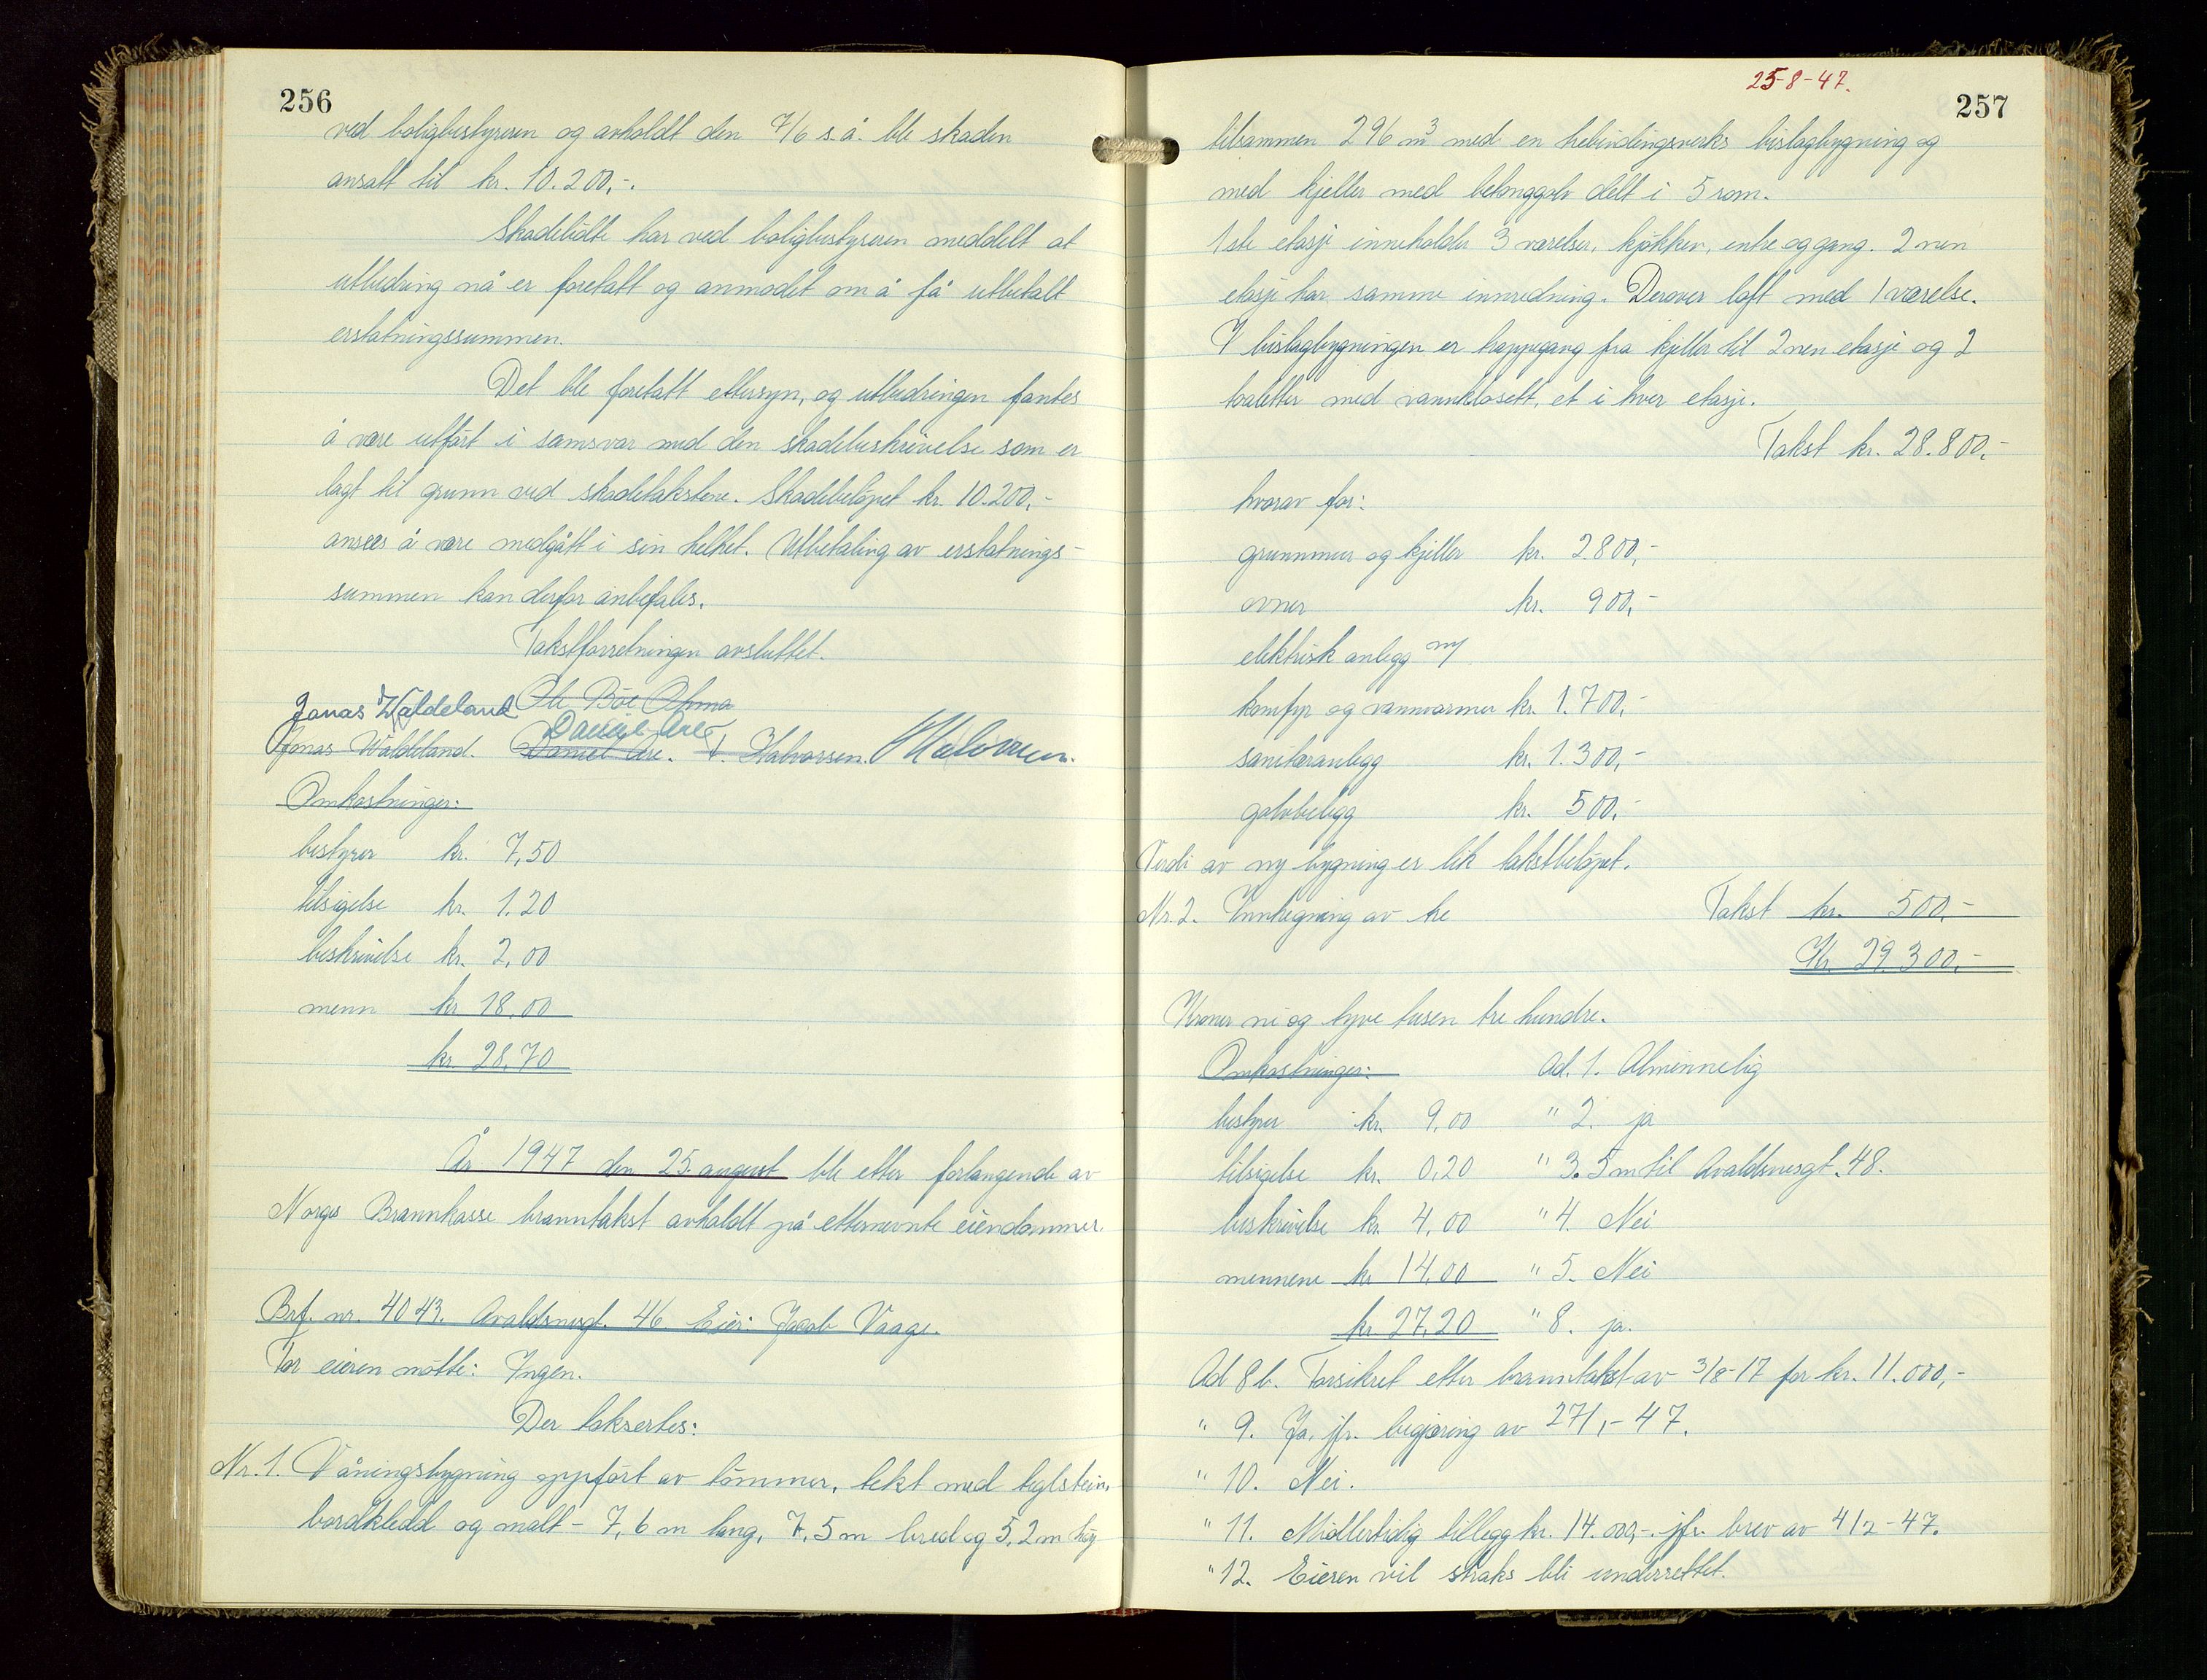 256
ved boligbestyreren og avholdt den 7/6 s.å. ble skaden
ansatt til kr. 10.200,-.
Skadelidte har ved boligbestyreren meddelt at
utbedring nå er foretatt og anmodet om å få utbetalt
erstatningssummen.
Det ble foretatt ettersyn, og utbedringen fantes
å være utført i samsvar med den skadebeskrivelse som er
lagt til grunn ved skadetakstene. Skadebeløpet kr. 10.200,-
ansees å være medgått i sin helhet. Utbetaling av erstatnings-
summen kan derfor anbefales.
Takstforretningen avsluttet.
Jonas Waldeland
Daniel Are
Jonas Waldeland. Daniel Are. T. Halvorsen. THalvorsen.
Omkostninger:
bestyrer kr. 7,50
tilsigelse kr. 1.20
beskrivelse kr. 2,00
menn kr 18,00
kr. 28,70
År 1947 den 25. august ble etter forlangende av
Norges Brannkasse branntakst avholdt på etternevnte eiendommer.
Brf. nr. 4043. Avaldsnesgt. 46. Eier: Jacob Vaage.
For eieren møtte: Ingen.
Der taksertes:
Nr. 1. Våningsbygning oppført av tømmer, tekt med teglstein,
bordkledd og malt - 7,6 m lang, 7,5 m bred og 5,2 m høy
25-8-47.
257
tilsammen 296 m³ med en trebindingsverks bislagbygning og
med kjeller med betonggolv delt i 5 rom.
1ste etasje inneholder 3 værelser, kjøkken, entre og gang. 2 nen
etasje har samme innredning. Derover loft med 1 værelse.
I bislagbygningen er trappegang fra kjeller til 2 nen etasje og 2
toaletter med vannklosett, et i hver etasje.
Takst kr. 28.800,-
hvorav for:
grunnmur og kjeller kr. 2.800,-
ovner kr. 900,-
elektrisk anlegg m/
komfyr og vannvarmer kr. 1.700,-
sanitæranlegg kr. 1.300,-
golvbelegg kr. 500,-
Verdi av ny bygning er lik takstbeløpet.
Nr. 2. Innhegning av tre Takst kr. 500,-
Kr. 29.300,-
Kroner ni og tyve tusen tre hundre.
Omkostninger: Ad. 1. Alminnelig
bestyrer kr. 9,00 " 2. ja
tilsigelse kr. 0,20 " 3. 5 m til Avaldsnesgt. 48.
beskrivelse kr. 4,00 " 4. Nei
mennene kr 14,00 " 5. Nei
kr. 27,20 " 8. ja.
Ad 8 b. Forsikret etter branntakst av 3/8-17 for kr. 11.000,-
" 9. Ja, jfr. begjæring av 27/1-47.
" 10. Nei.
" 11. Midlertidig tillegg kr. 14.000,-. jfr. brev av 4/2-47.
" 12. Eieren vil straks bli underrettet.